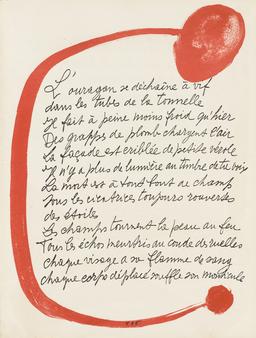 L'ouragan se déchaîne à vif
dans les tubes de la tonnelle
Il fait à peine moins froid qu'hier
Des grappes de plomb chargent l'air
La façade est criblée de petite vérole
Il n'y a plus de lumière au timbre de ta voix
La mort est à fond bout de champ
Sous les cicatrices toujours rouvertes
des étoiles
Les champs tournent la peau au feu
Tous les échos meurtris au coude des ruelles
chaque visage a sa flamme de sang
chaque corps déplacé souffle son monticule